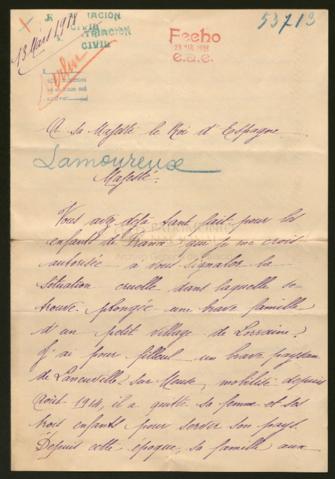 13 Mars 1918
CIVIL
CIVIL
Fecho
e.a.e.
53713
A sa Majesté le Roi d'Espagne
Lamoureux
Majesté:
Vous avez déjà tant fait pour les
enfants de France, que je me crois
autorisée à vous signaler la
situation cruelle dans laquelle se
trouve plongée une brave famille
d'un petit village de Lorraine:
J'ai pour filleul un brave paysan
de Laneuville sur Meuse, mobilisé depuis
Août 1914, il a quitté sa femme et ses
trois enfants pour servir son pays.
Depuis cette époque, sa famille aux